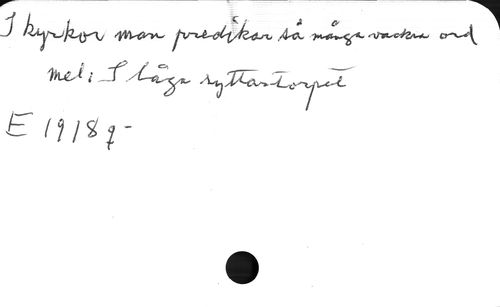 I kyrkor man predikar så många vackra ord
mel: I låga ryttartorpet
E 1918 q-